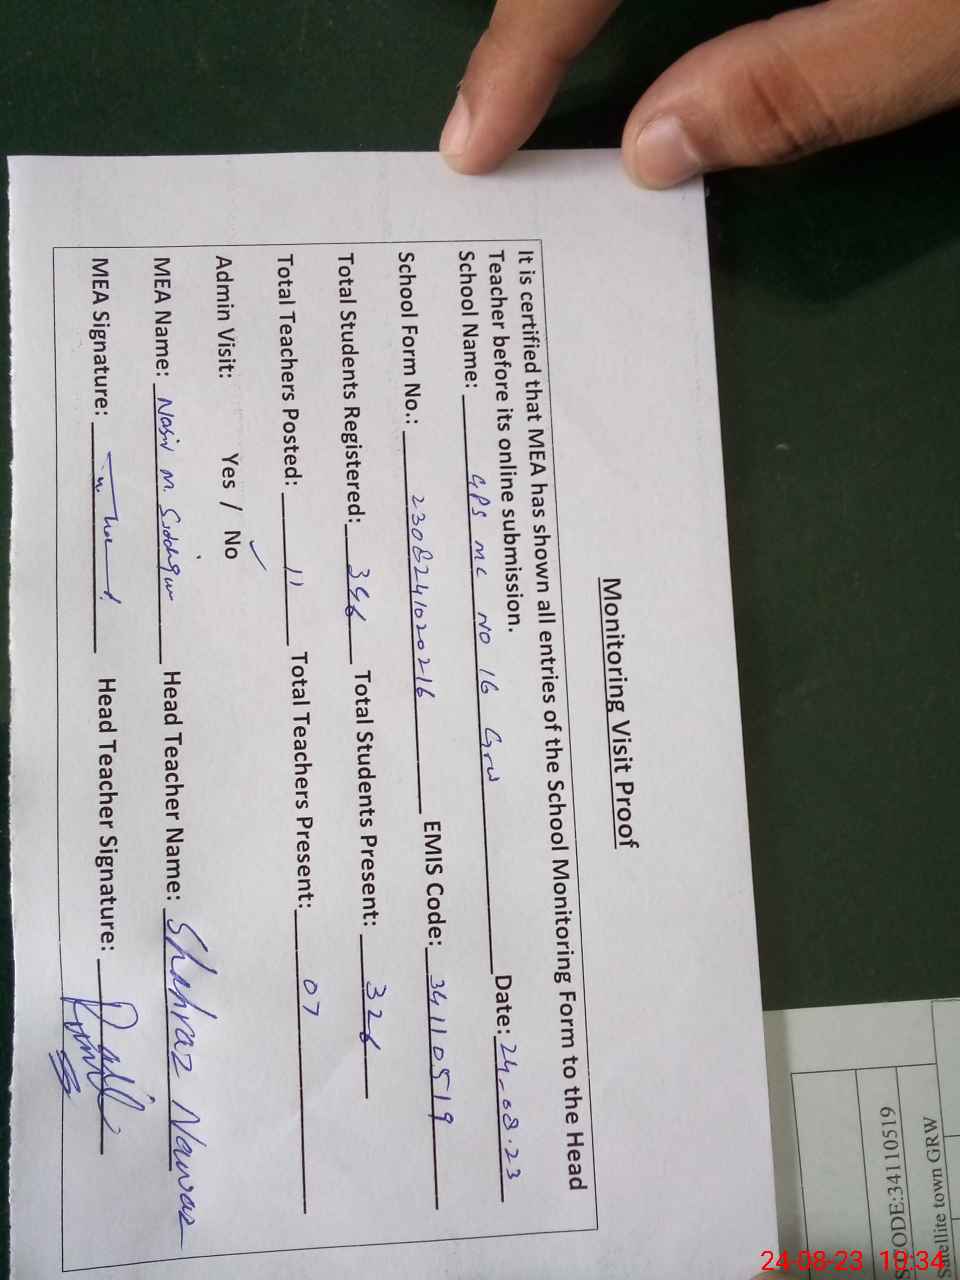 Monitoring Visit Proof
It is certified that MEA has shown all entries of the School Monitoring Form to the Head
Teacher before its online submission.
School Name: GPS MC NO 16 Grw Date: 24-08.23
School Form No.: 2308241020216 EMIS Code: 34110519
Total Students Registered: 396 Total Students Present: 326
Total Teachers Posted: 11 Total Teachers Present: 07
Admin Visit: Yes / No ✓
MEA Name: Nasir M. Siddiqui Head Teacher Name: Shahraz Nawaz
MEA Signature: Head Teacher Signature:
atellite town GRW
ODE:34110519
24-08-23 10:34